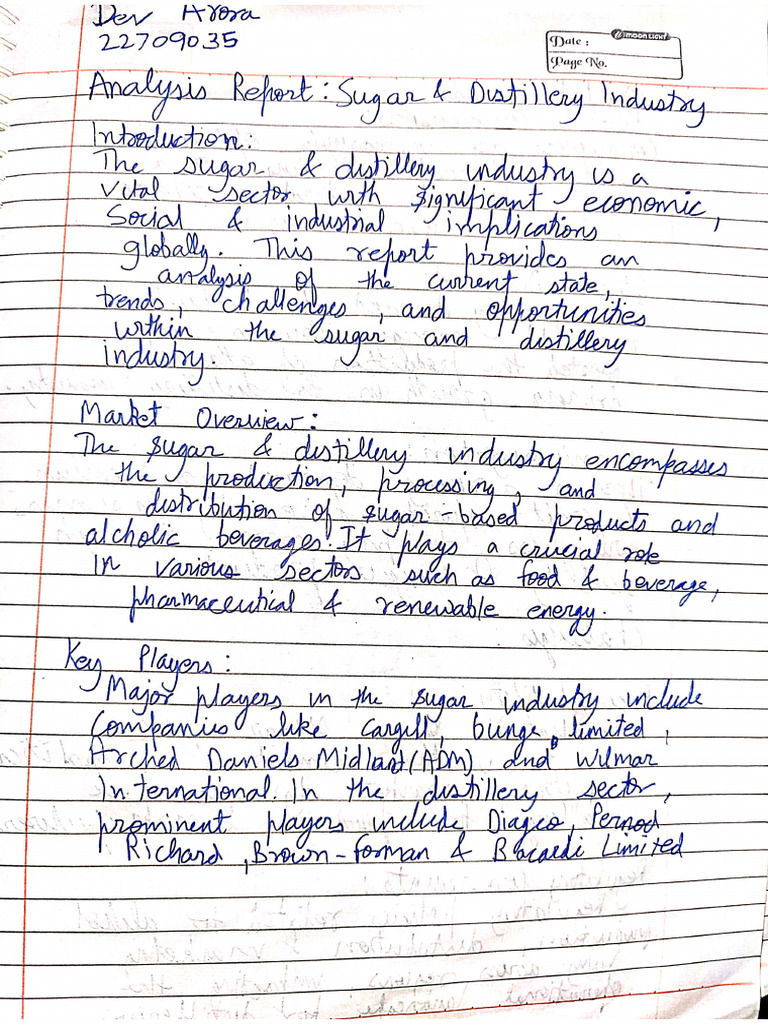 Dev Arora
22709035
MOON LIGHT
Date :
Page No.
Analysis Report: Sugar & Distillery Industry
Introduction:
The sugar & distillery industry is a
vital sector with significant economic,
Social & industrial implications
globally. This report provides an
analysis of the current state,
trends, challenges, and opportunities
within the sugar and distillery
industry.
Market Overview:
The sugar & distillery industry encompasses
the production, processing, and
distribution of sugar-based products and
alcholic beverages. It plays a crucial role
in various sectors such as food & beverage,
pharmaceutical & renewable energy.
Key Players:
Major players in the sugar industry include
Companies like Cargill, bunge, limited,
Arched Daniels Midland (ADM) and Wilmar
International. In the distillery sector,
prominent players include Diageo, Pernod
Richard, Brown-Forman & Bacardi Limited